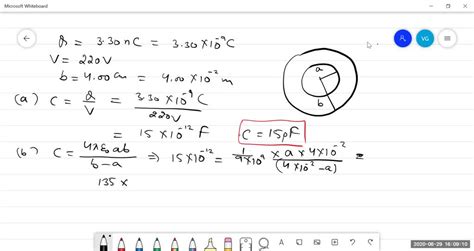 Microsoft Whiteboard
VG
Q = 3.30 nC = 3.30 × 10⁻⁹ C
V = 220V
b = 4.00 cm = 4.00 × 10⁻² m
a
b
(a) C = Q/V = 3.30 × 10⁻⁹ C / 220V
= 15 × 10⁻¹² F
C = 15pF
(b) C = 4πε₀ab / b-a ⇒ 15 × 10⁻¹² = 1/9×10⁹ × a × 4 × 10⁻² / (4 × 10⁻² - a) =
135 ×
2020-06-29 16:09:19